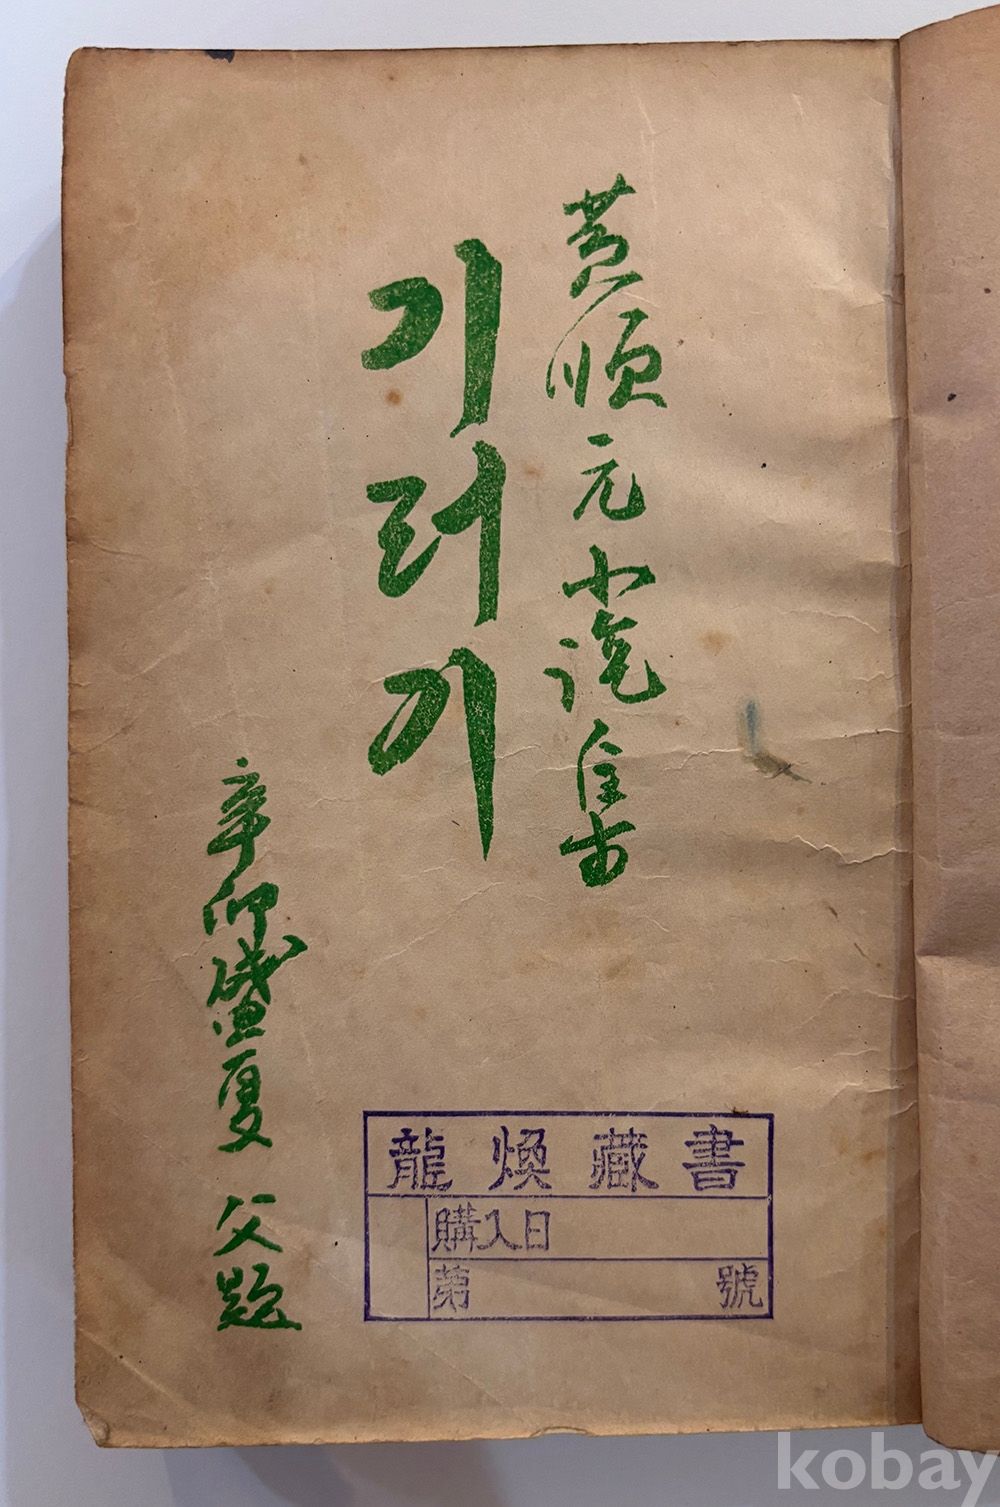 黃順元小說集
기러기
辛卯盛夏 父題
龍煥藏書
購入日
第 號
kobay